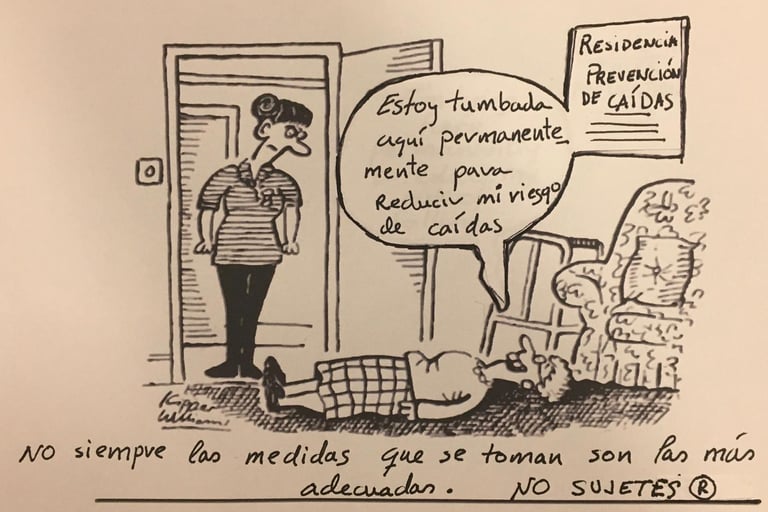 RESIDENCIA
PREVENCIÓN
DE CAÍDAS
Estoy tumbada
aquí permanente
mente para
Reducir mi riesgo
de caídas
Kipper
Williams
NO siempre las medidas que se toman son las más
adecuadas. NO SUJETES ®